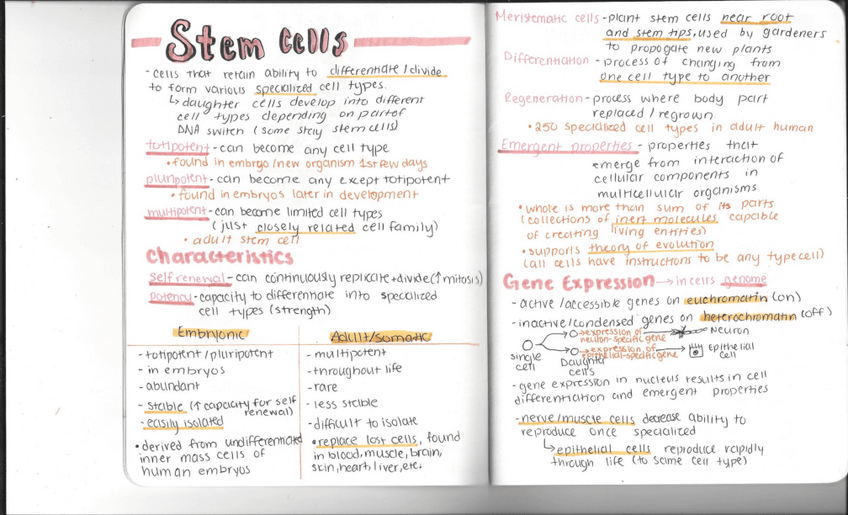 Stem Cells
- cells that retain ability to differentiate/divide
to form various specialized cell types.
↳ daughter cells develop into different
cell types depending on part of
DNA switch (some stay stem cells)
totipotent - can become any cell type
• found in embryo/new organism 1st few days
pluripotent - can become any except totipotent
• found in embryos later in development
multipotent - can become limited cell types
(just closely related cell family)
• adult stem cell
Characteristics
self renewal - can continuously replicate + divide (↑ mitosis)
potency - capacity to differentiate into specialized
cell types (strength)
Embryonic
- totipotent/pluripotent
- in embryos
- abundant
- stable (↑ capacity for self
renewal)
- easily isolated
• derived from undifferentiated
inner mass cells of
human embryos
Adult/Somatic
- multipotent
- throughout life
- rare
- less stable
- difficult to isolate
• replace lost cells, found
in blood, muscle, brain,
skin, heart, liver, etc.
Meristematic cells - plant stem cells near root
and stem tips, used by gardeners
to propogate new plants
Differentiation - process of changing from
one cell type to another
Regeneration - process where body part
replaced/regrown
• 250 specialized cell types in adult human
Emergent properties - properties that
emerge from interaction of
cellular components in
multicellular organisms
• whole is more than sum of its parts
(collections of inert molecules capable
of creating living entities)
• supports theory of evolution
(all cells have instructions to be any type cell)
Gene Expression → in cells genome
- active/accessible genes on euchromatin (on)
- inactive/condensed genes on heterochromatin (off)
single
cell
Daughter
cells
→ expression of
neuron-specific gene
Neuron
→ expression of
epithelial-specific gene
Epithelial
cell
- gene expression in nucleus results in cell
differentiation and emergent properties
- nerve/muscle cells decrease ability to
reproduce once specialized
↳ epithelial cells reproduce rapidly
through life (to same cell type)